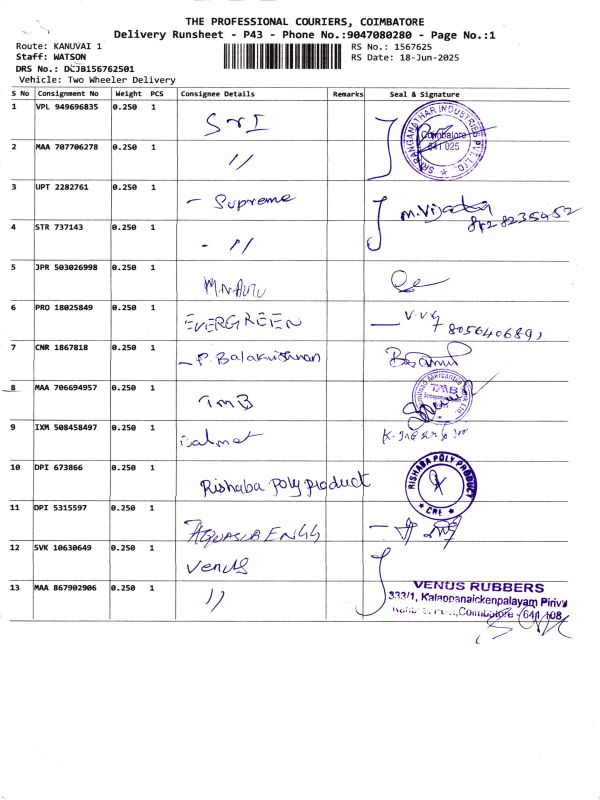 THE PROFESSIONAL COURIERS, COIMBATORE
Delivery Runsheet - P43 - Phone No.:9047080280 - Page No.:1
Route: KANUVAI 1 RS No.: 1567625
Staff: WATSON RS Date: 18-Jun-2025
DRS No.: DCJB156762501
Vehicle: Two Wheeler Delivery
S No Consignment No Weight PCS Consignee Details Remarks Seal & Signature
1 VPL 949696835 0.250 1 SrI
SRI RANGANATHAR INDUSTRIES PVT. LTD.
Coimbatore
641 025
2 MAA 707706278 0.250 1 "
3 UPT 2282761 0.250 1 - Supreme
4 STR 737143 0.250 1 - "
5 JPR 503026998 0.250 1 M.N.Auto
6 PRO 18025849 0.250 1 EVERGREEN
7 CNR 1867818 0.250 1 - P. Balakrishnan
8 MAA 706694957 0.250 1 TMB
TMB
9 IXM 508458497 0.250 1
10 DPI 673866 0.250 1 Rishaba poly product
RISHABA POLY PRODUCT
* CBE *
11 DPI 5315597 0.250 1 AQUASUB ENGG
12 SVK 10630649 0.250 1 Venus
13 MAA 867902906 0.250 1 "
VENUS RUBBERS
333/1, Kalappanaickenpalayam Pirivu
Coimbatore - 641 108